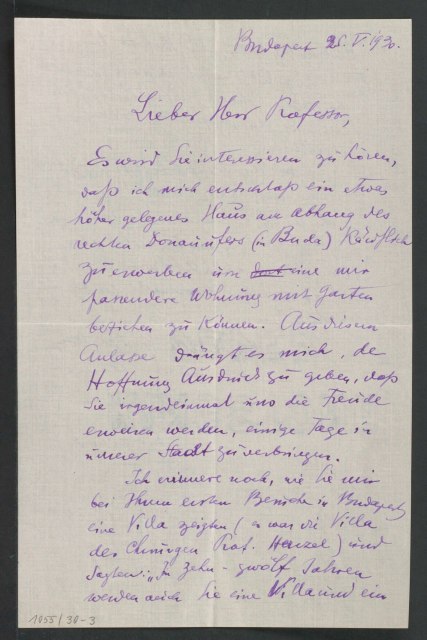 Budapest 28. V. 1930.
Lieber Herr Professor,
Es wird Sie interessieren zu hören,
daß ich mich entschloß ein etwas
höher gelegenes Haus am Abhang des
rechten Donauufers (in Buda) käuflich
zu erwerben um eine mir
passendere Wohnung mit Garten
beziehen zu können. Aus diesem
Anlasse drängt es mich, der
Hoffnung Ausdruck zu geben, daß
Sie irgendeinmal uns die Freude
erweisen werden, einige Tage in
unserer Stadt zu verbringen.
Ich erinnere noch, wie Sie mir
bei Ihrem ersten Besuche in Budapest
eine Villa zeigten (es war die Villa
des Chirurgen Prof. Herzel) und
sagten: „In zehn - zwölf Jahren
werden auch Sie eine Villa und ein
1055/30-3